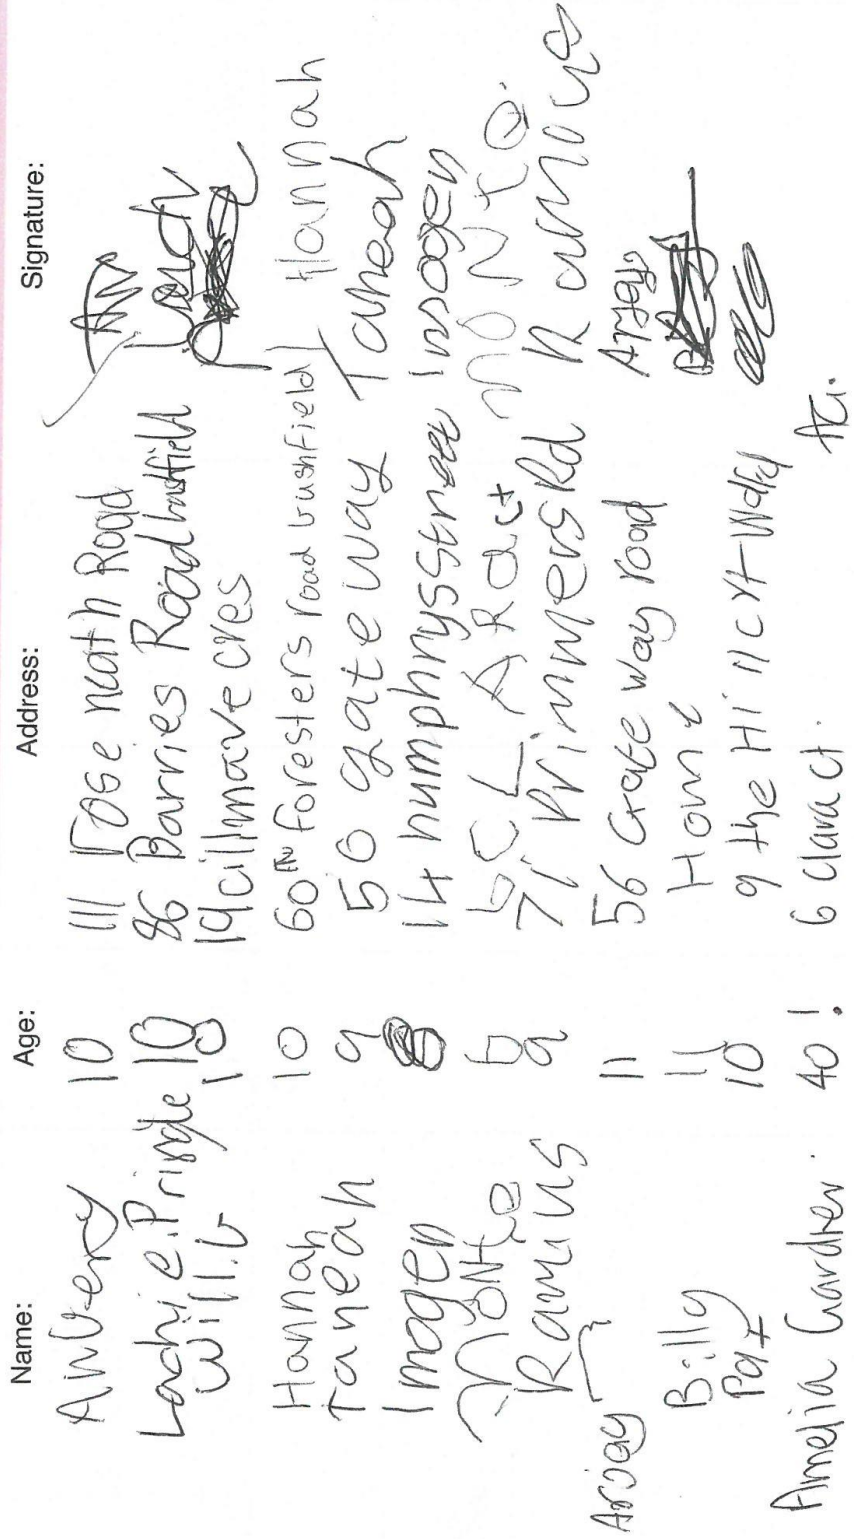 Name: Age: Address: Signature:
10 111 rose neath Road
Lachie.Pringle 10 86 Barries Road
Will.b 10 cres
Hannah 10 60 foresters road bushfield Hannah
Taneah 9 50 gate way Taneah
Imogen 14 humphrys street Imogen
MONTE 6 6 CLARA ct MONTE
Ramius 9 71 Primmers Rd Ramius
11 56 Grate way road
Billy 11 Home
Pat 10 9 the Hill crt
Amelia Gardner. 40! 6 Clara ct. AG.